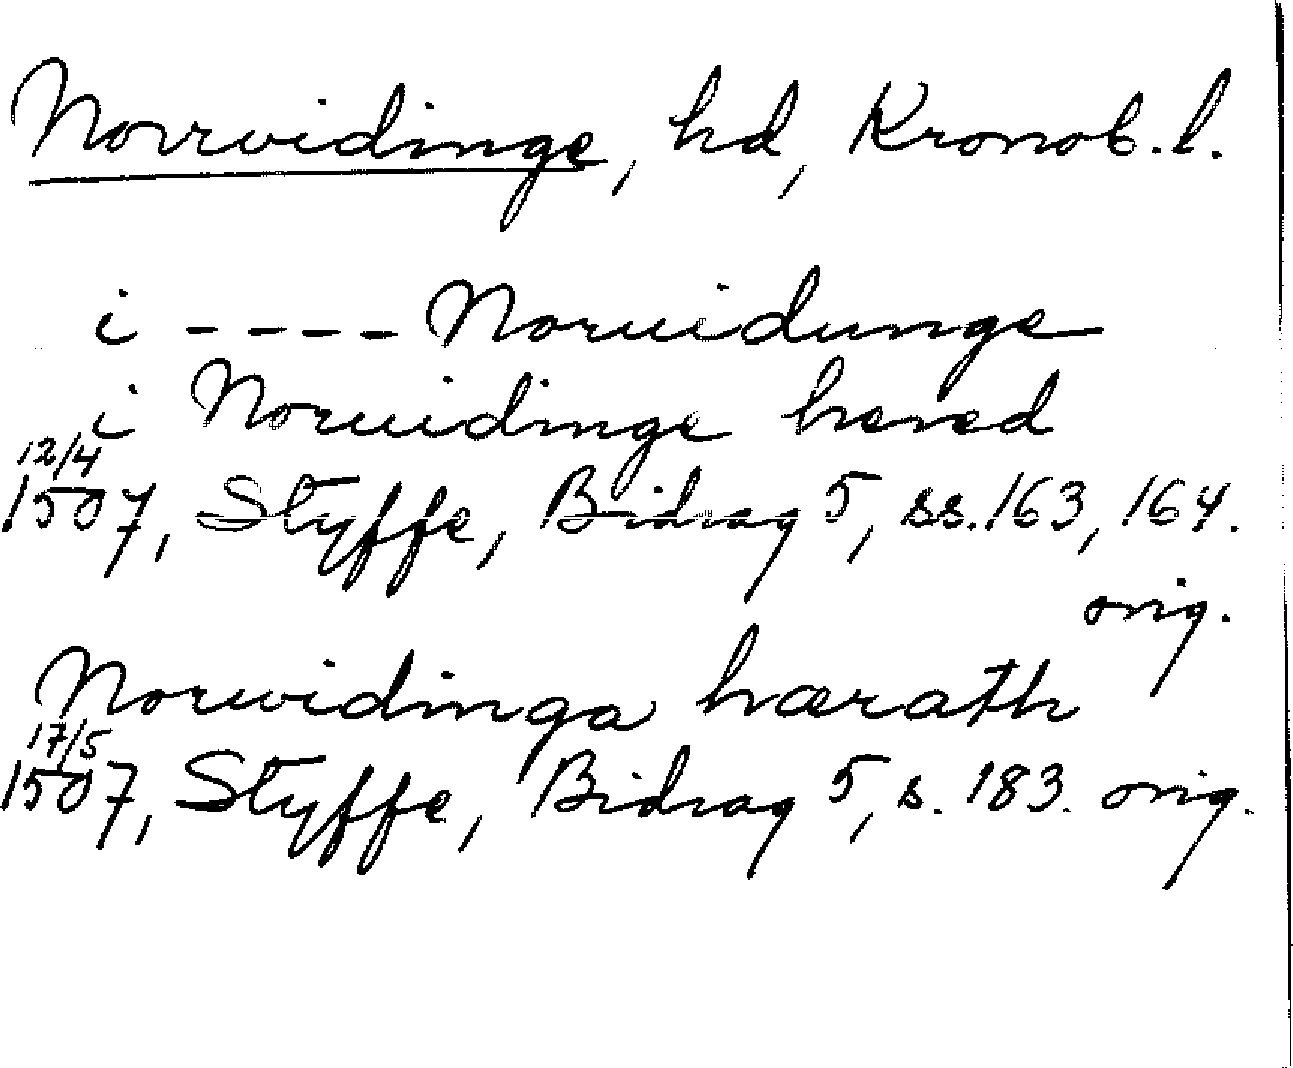 Norrvidinge, hd, Kronob. l.
i ---- Noruidunge
i Noruidinge hered
12/4
1507, Styffe, Bidrag 5, ss. 163, 164.
orig.
Norvidinga hærath
17/5
1507, Styffe, Bidrag 5, s. 183. orig.